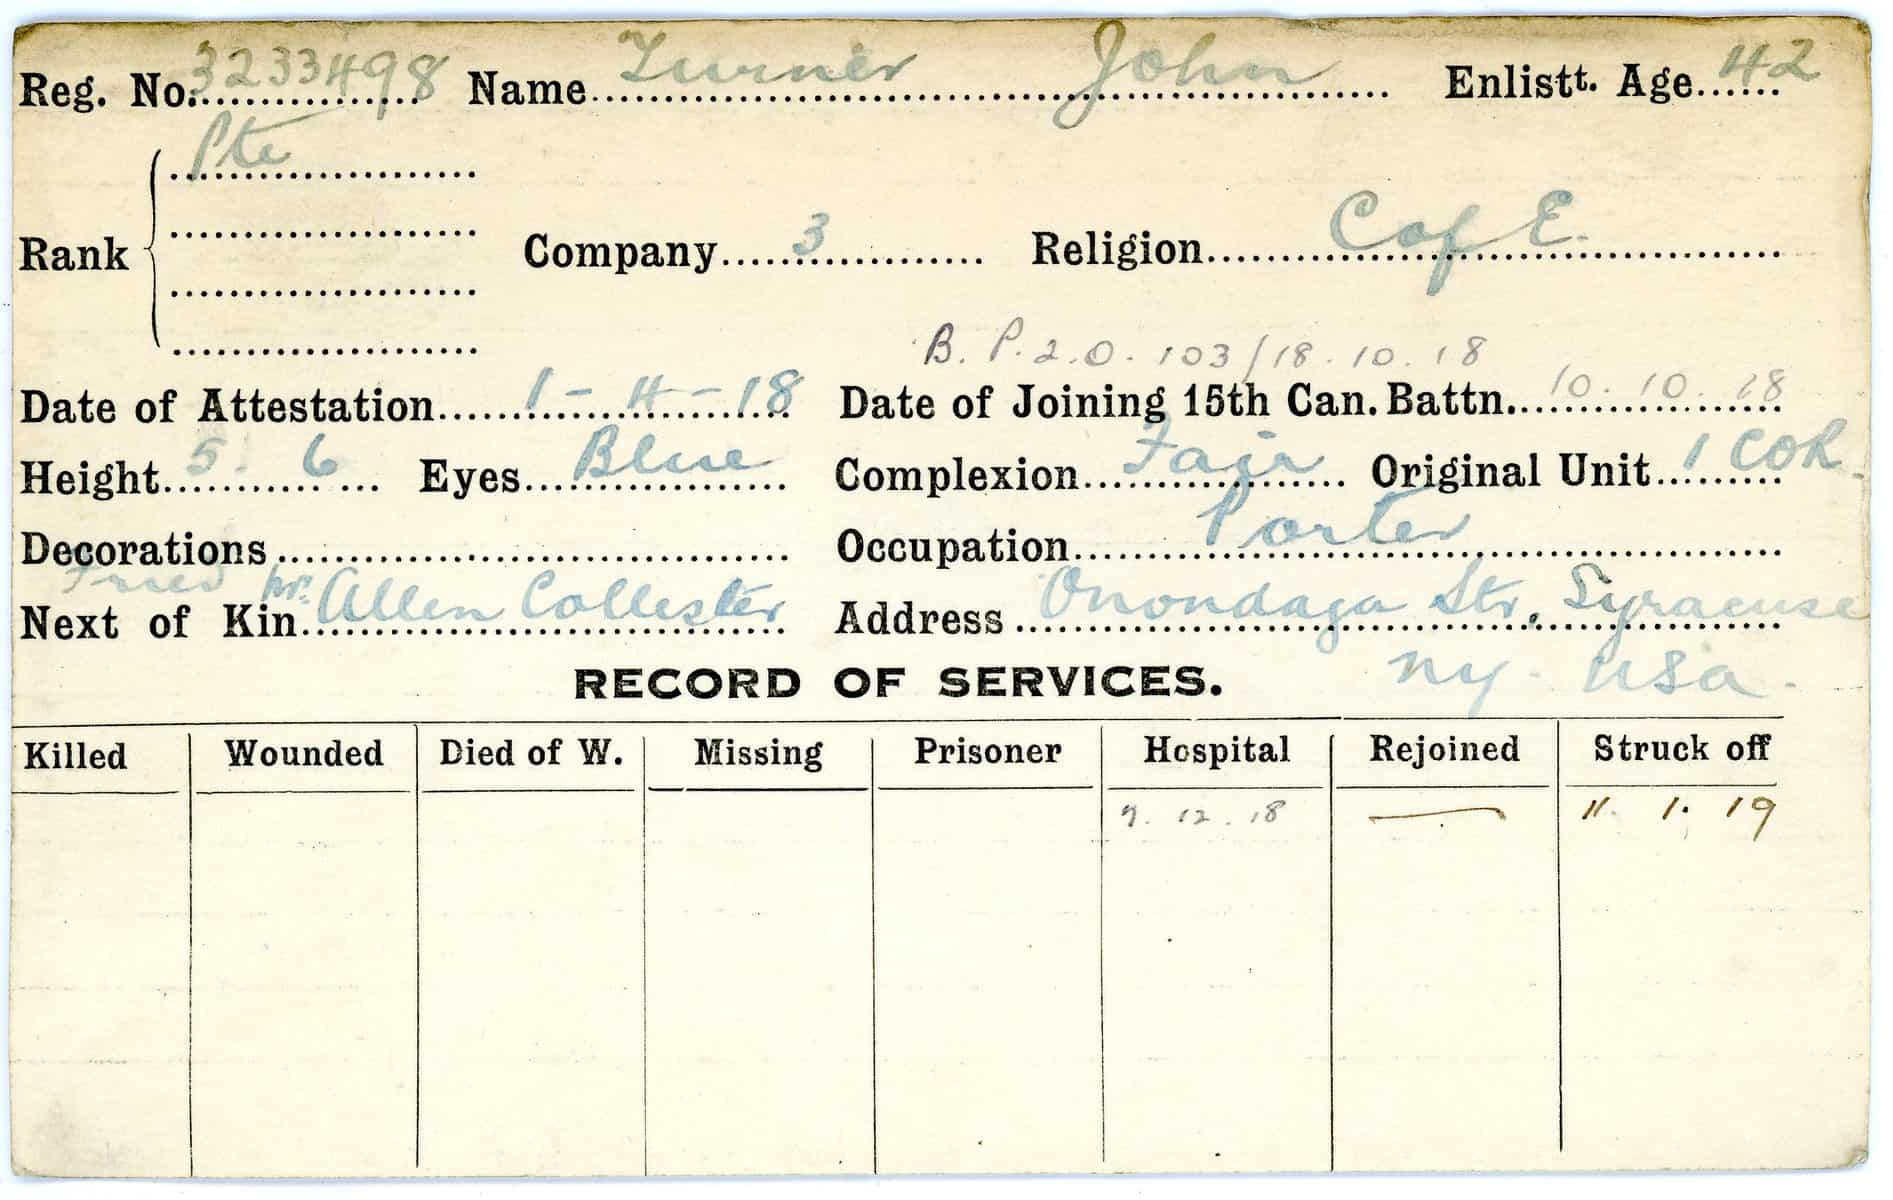 Reg. No. 3233498 Name Turner John Enlistt. Age 42
Pte
Rank Company 3 Religion C of E.
B. P. 2. O. 103/18.10.18
Date of Attestation 1-4-18 Date of Joining 15th Can. Battn. 10.10.18
Height 5. 6 Eyes Blue Complexion Fair Original Unit 1 COR.
Decorations Occupation Porter
Next of Kin Mr. Allen Collester Address Onondaga Str. Syracuse
NY. USA.
RECORD OF SERVICES.
Killed Wounded Died of W. Missing Prisoner Hospital Rejoined Struck off
7.12.18 — 11.1.19